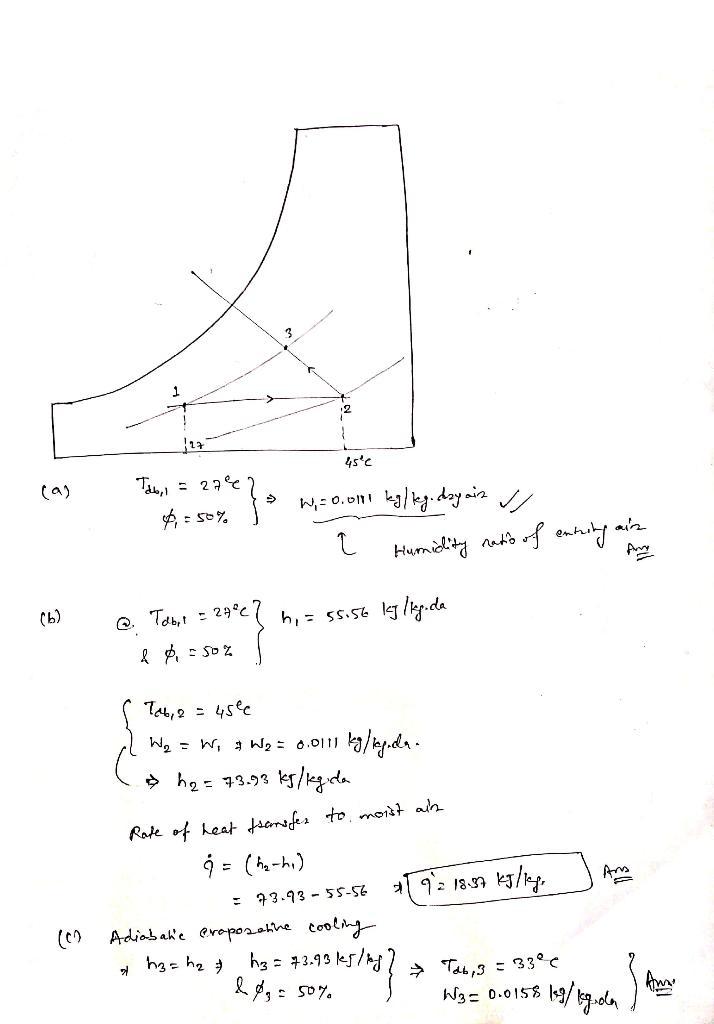 3
1
2
27
45°C
(a) Tdb,1 = 27°C } ⇒ W₁ = 0.0111 kg/kg.dry air ✓✓
φ₁ = 50%
↑ Humidity ratio of entering air Ans
(b) @. Tdb,1 = 27°C } h₁ = 55.56 kJ/kg.da
& φ₁ = 50%
{ Tdb,2 = 45°C
W₂ = W₁ ⇒ W₂ = 0.0111 kg/kg.da.
⇒ h₂ = 73.93 kJ/kg.da
Rate of heat transfer to moist air
q̇ = (h₂-h₁)
= 73.93 - 55.56 ⇒ q̇ = 18.37 kJ/kg. Ans
(c) Adiabatic evaporative cooling
⇒ h₃ = h₂ ⇒ h₃ = 73.93 kJ/kg } ⇒ Tdb,3 = 33°C } Ans.
& φ₃ = 50% W₃ = 0.0158 kg/kg.da